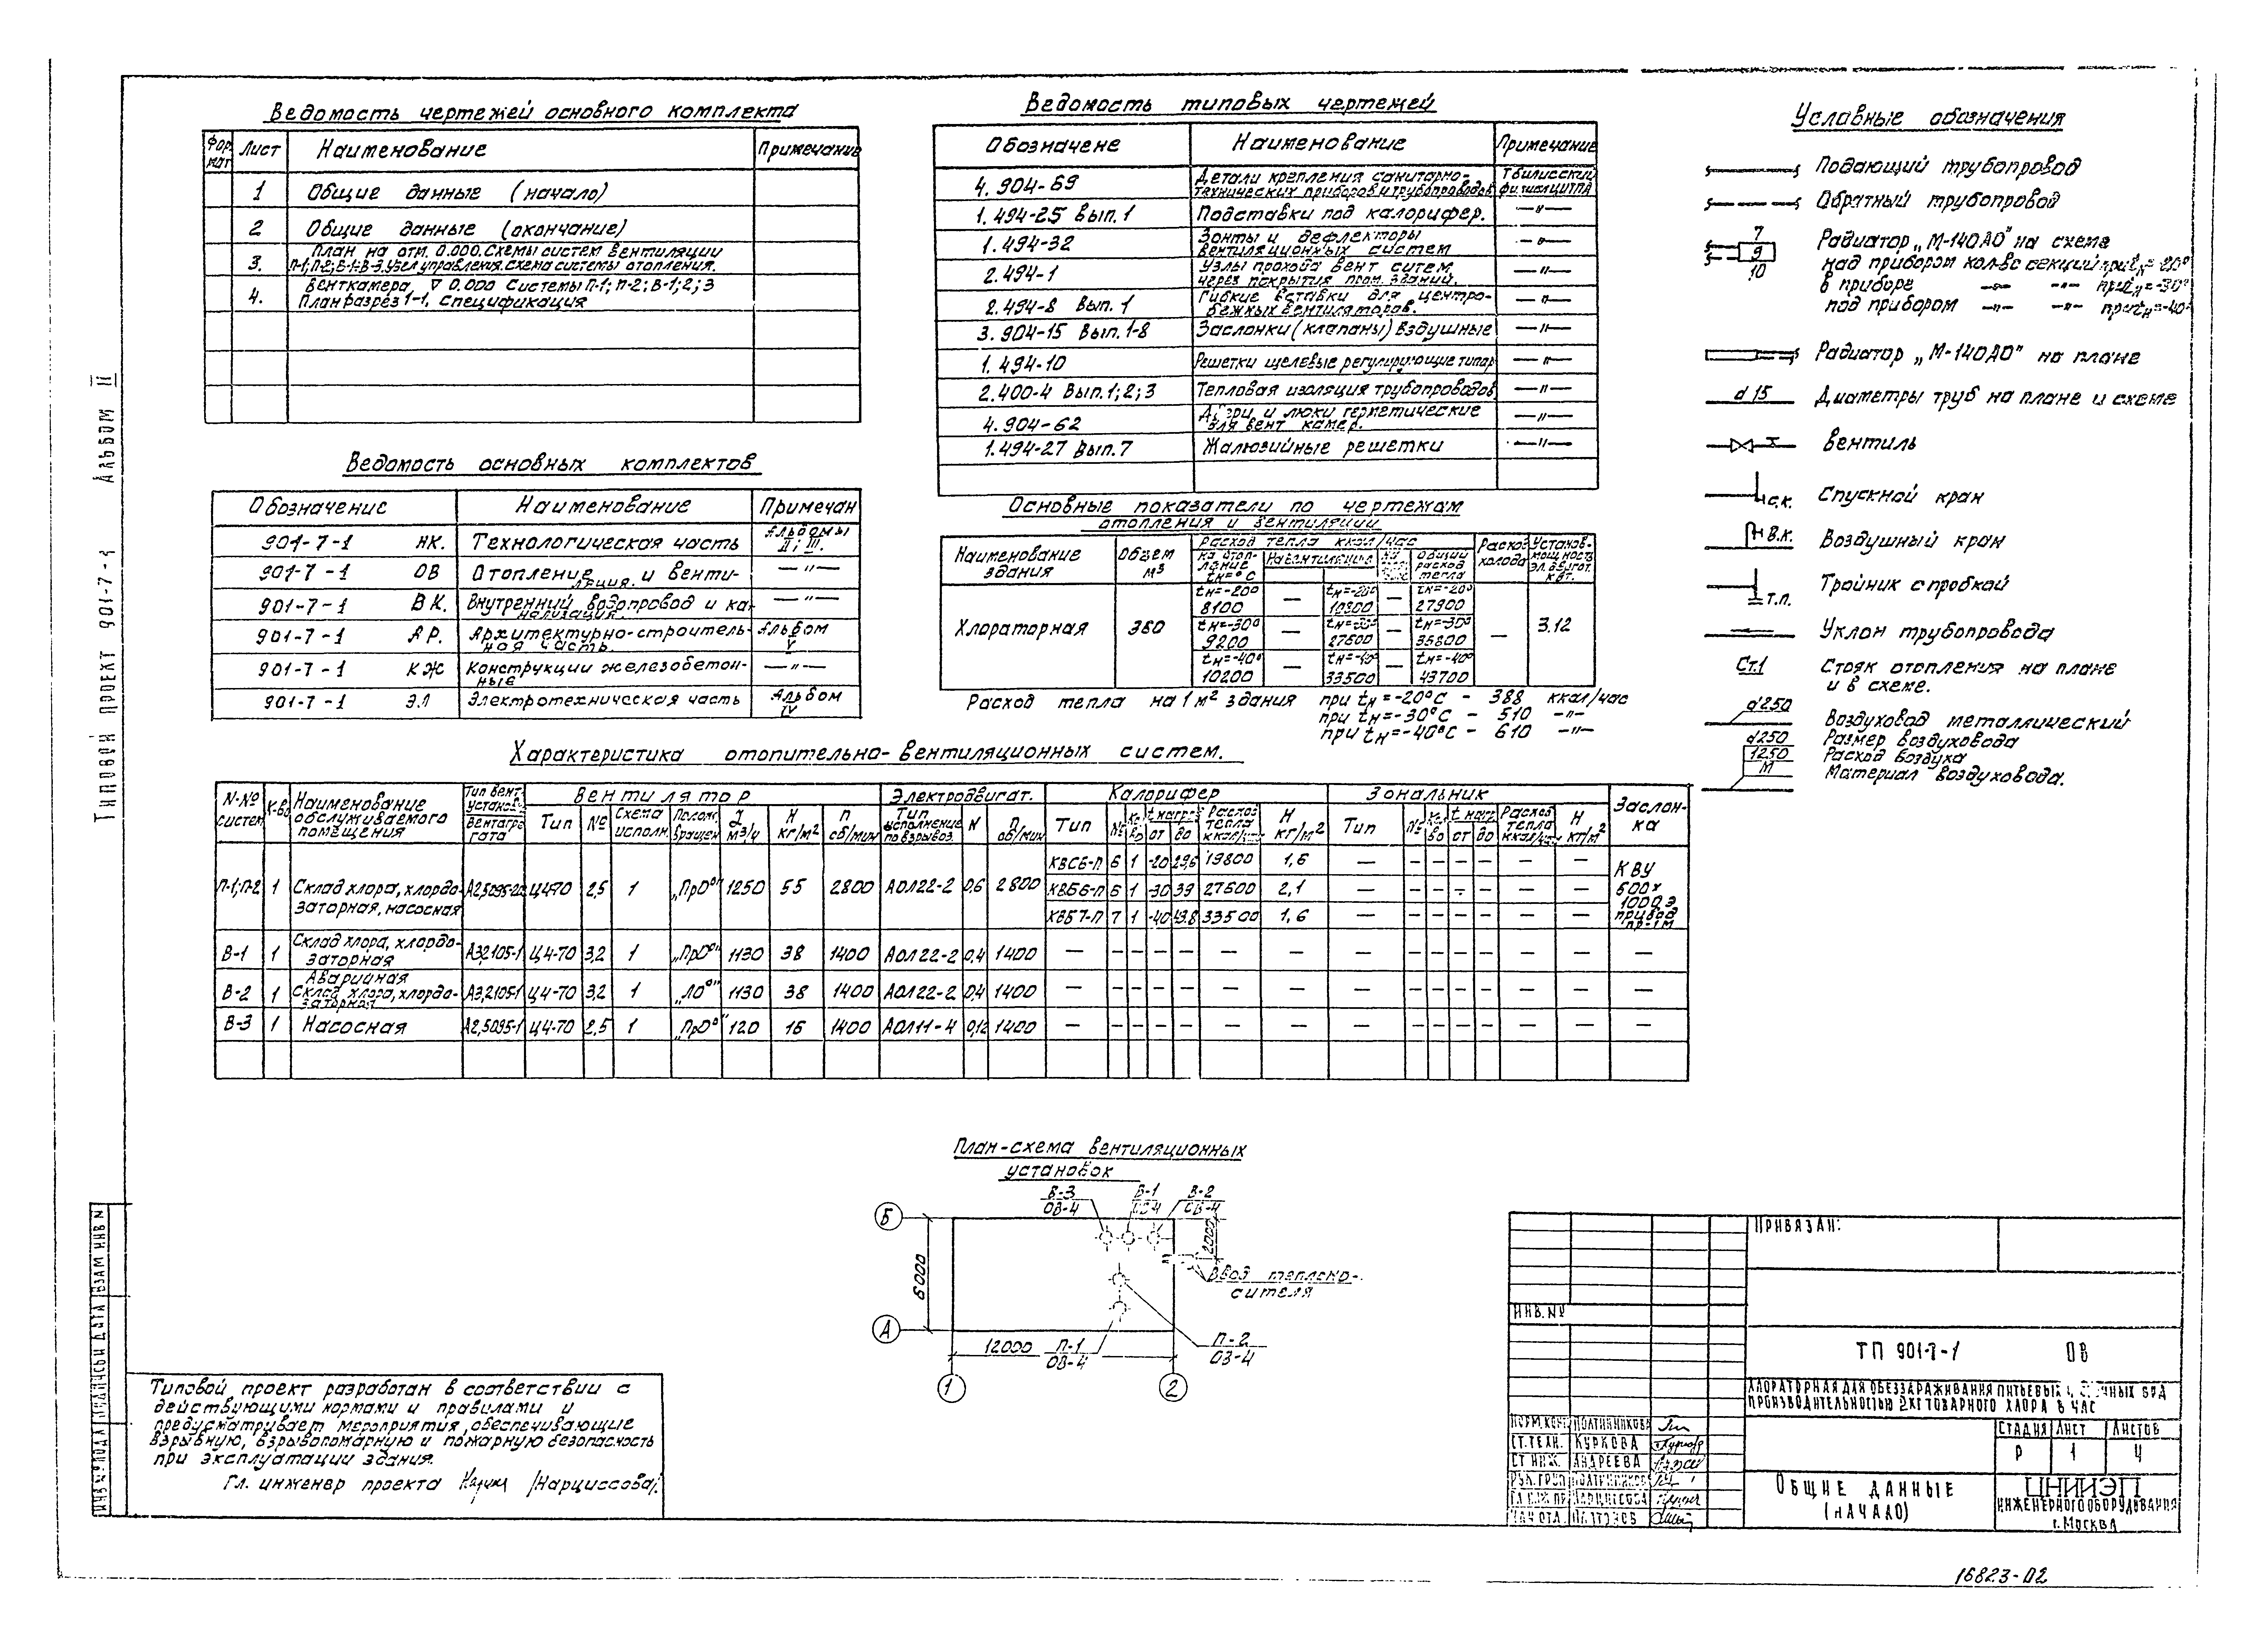 Ведомость чертежей основного комплекта
Фор мат Лист Наименование Примечание
1 Общие данные (начало)
2 Общие данные (окончание)
3. План на отм. 0.000. Схемы систем вентиляции
П-1; П-2; В-1÷В-3. Узел управления. Схема системы отопления.
4. Венткамера, ▽ 0.000 Системы П-1; п-2; В-1; 2; 3
План разрез 1-1, Спецификация
Ведомость основных комплектов
Обозначение Наименование Примечан
901-7-1 НК. Технологическая часть Альбомы II; III.
901-7-1 ОВ Отопление и венти-
ляция. —"—
901-7-1 ВК. Внутренний водопровод и ка-
нализация. —"—
901-7-1 АР. Архитектурно-строитель-
ная часть. Альбом V
901-7-1 КЖ Конструкции железобетон-
ные —"—
901-7-1 ЭЛ Электротехническая часть Альбом IV
Ведомость типовых чертежей
Обозначене Наименование Примечание
4.904-69 Детали крепления санитарно-
технических приборов и трубопроводов Тбилисский филиал ЦИТПА
1.494-25 Вып.1 Подставки под калорифер. —"—
1.494-32 Зонты и дефлекторы
вентиляционных систем —"—
2.494-1 Узлы прохода вент ситем
через покрытия пром. зданий. —"—
2.494-8 Вып. 1 Гибкие вставки для центро-
бежных вентиляторов. —"—
3.904-15 Вып. 1-8 Заслонки (клапаны) вздушные —"—
1.494-10 Решетки щелевые регулирующие типа р —"—
2.400-4 Вып. 1; 2; 3 Тепловая изоляция трубопроводов —"—
4.904-62 Двери и люки герметические
для вент камер. —"—
1.494-27 Вып.7 Жалюзийные решетки —"—
Основные показатели по чертежам
отопления и вентиляции
Наименование здания Объем м³ Расход тепла ккал/час Расход холода Установ. мощность эл. двигат. квт.
на отоп-ление tн=°С На вентиляцию Общий расход тепла
Хлораторная 360 3.12
tн=-20° 8100 — tн=-20° 19800 — tн=-20° 27900
tн=-30° 9200 — tн=-30° 27600 — tн=-30° 36800 —
tн=-40° 10200 — tн=-40° 33500 — tн=-40° 43700
Расход тепла на 1 м² здания при tн=-20°С - 388 ккал/час
при tн=-30°С - 510 —"—
при tн=-40°С - 610 —"—
Условные обозначения
Подающий трубопровод
Обратный трубопровод
7 9 10 Радиатор „М-140АО" на схеме
над прибором кол-во секций при tн=-20°
в приборе —"— —"— при tн=-30°
под прибором —"— —"— при tн=-40°
Радиатор „М-140АО" на плане
d 15 Диаметры труб на плане и схеме
вентиль
с.к. Спускной кран
В.К. Воздушный кран
Т.П. Тройник с пробкой
Уклон трубопровода
Ст.1 Стояк отопления на плане
и в схеме.
d250 Воздуховод металлический
d250 Размер воздуховода
1250 Расход воздуха
М Материал воздуховода.
Характеристика отопительно-вентиляционных систем.
N-№ систем К-во Наименование обслуживаемого помещения Тип вент. установ. Вентагре гата Вентилятор Электродвигат. Калорифер Зональник Заслон-ка
Тип № Схема исполн. Полож. вращен. L м³/ч Н кг/м² n об/мин Тип исполнение по взрывоз. N n об/мин Тип № К-во t нагр от до Расход тепла ккал/ч Н кг/м² Тип № К-во t наг. от до Расход тепла ккал/ч Н кг/м²
П-1; П-2 1 Склад хлора, хлордо-
заторная, насосная А2,5095-2а Ц4-70 2,5 1 „Пр0°" 1250 55 2800 АОЛ22-2 0,6 2800
КВСБ-П 6 1 -20 29,6 19800 1,6 — — — — — — —
КВББ-П 6 1 -30 39 27600 2,1 — — — — — — —
КВБ7-П 7 1 -40 43.8 33500 1,6 — — — — — — —
КВУ 600х 1000 Э. привод пр-1м
В-1 1 Склад хлора, хлордо-
заторная А3,2105-1 Ц4-70 3,2 1 „Пр0°" 1130 38 1400 АОЛ22-2 0,4 1400 — — — — — — — — — — — — — — —
В-2 1 Аварийная
Склад хлора, хлордо-
заторная А3,2105-1 Ц4-70 3,2 1 „Л0°" 1130 38 1400 АОЛ22-2 0,4 1400 — — — — — — — — — — — — — — —
В-3 1 Насосная А2,5095-1 Ц4-70 2,5 1 „Пр0°" 120 16 1400 АОЛ11-4 0,12 1400 — — — — — — — — — — — — — — —
План-схема вентиляционных
установок
В-3 ОВ-4
В-1 ОВ-4
В-2 ОВ-4
Б
6000
2000
Ввод теплоно-
сителя
А
12000
П-1 ОВ-4
П-2 ОВ-4
1 2
Типовой проект разработан в соответствии с
действующими нормами и правилами и
предусматривает мероприятия, обеспечивающие
взрывную, взрывопожарную и пожарную безопасность
при эксплуатации здания.
Гл. инженер проекта /Нарциссова/.
Типовой проект 901-7-1 Альбом II
ИНВ.№ ПОДЛ. ПОДПИСЬ И ДАТА ВЗАМ ИНВ N
Привязан:
ИНВ.№
ТП 901-7-1 ОВ
Хлораторная для обеззараживания питьевых и сточных вод
производительностью 2кг товарного хлора в час
Стадия Лист Листов
Р 1 4
Норм.конт. Полтинникова
Ст.техн. Куркова
Ст инж. Андреева
Рук.груп
Гл инж пр Нарциссова
Нач отд. Платонов
Общие данные
(начало)
ЦНИИЭП
инженерного оборудования
г. Москва
16823-02